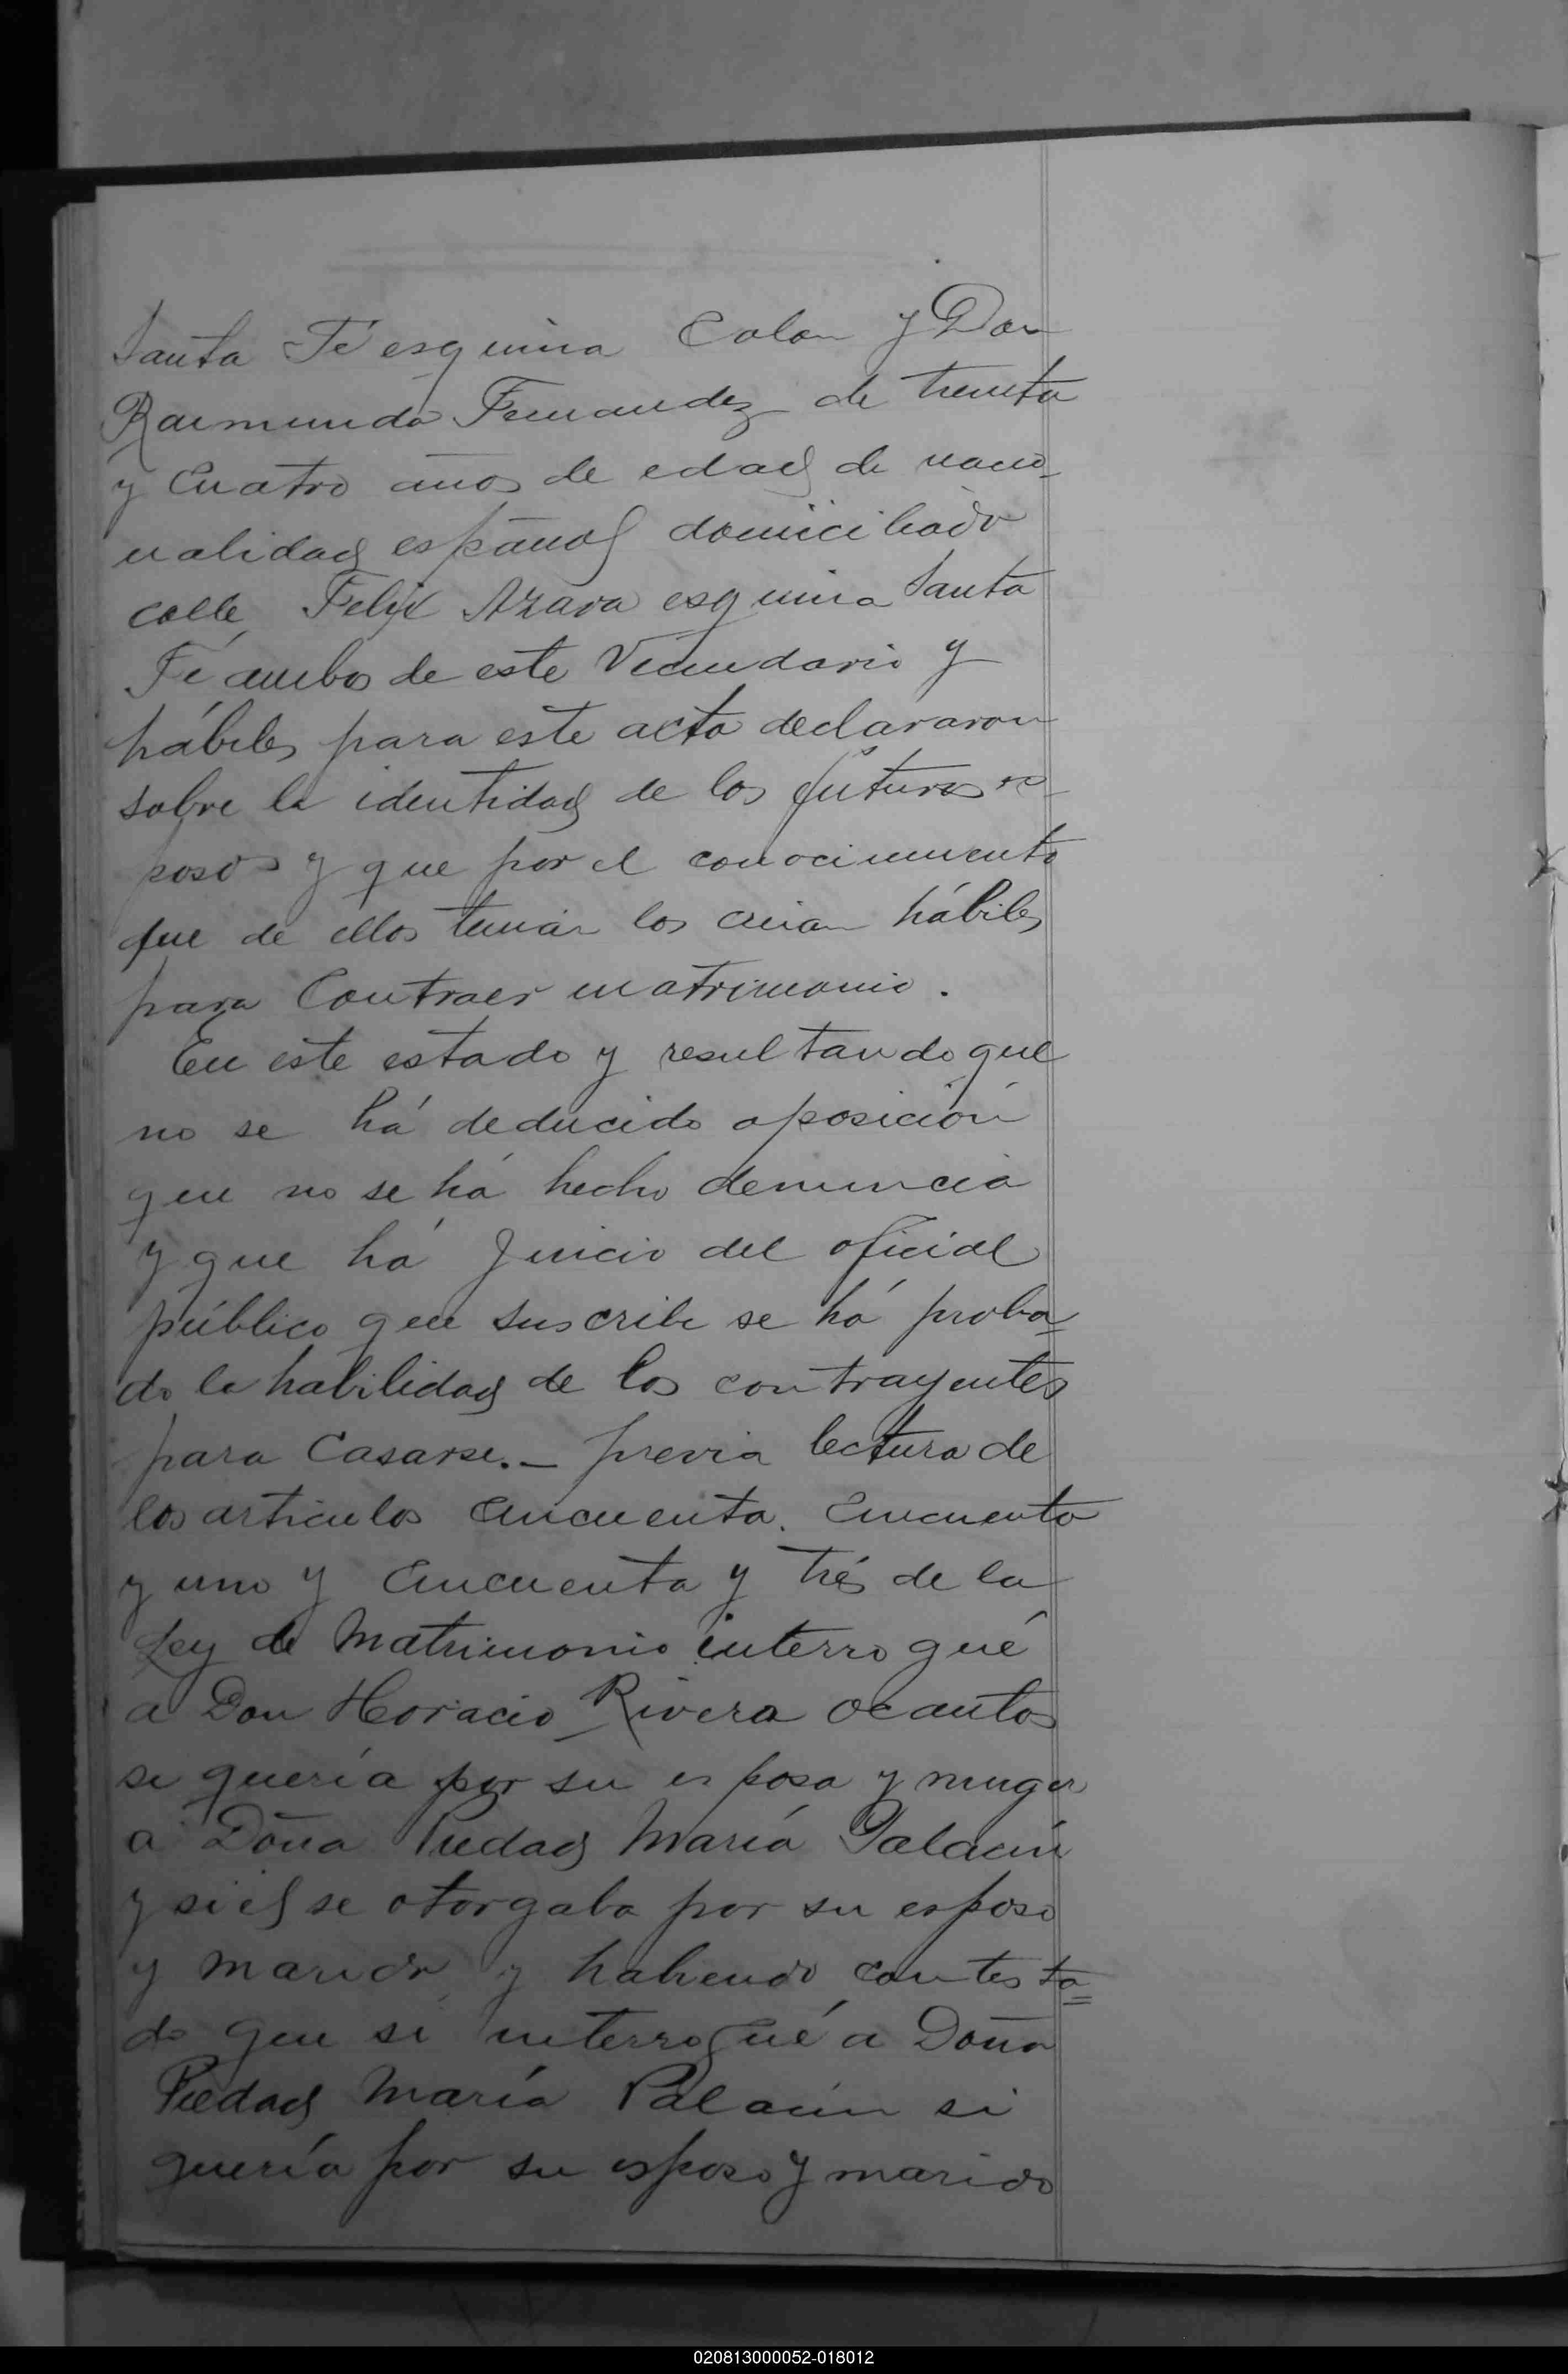 Santa Fé esquina Colon y Don
Raimundo Fernandez de treinta
y Cuatro años de edad de nacio-
nalidad español domiciliado
calle Felix Azara esquina Santa
Fé ambos de este Vecindario y
hábiles para este acto declararon
sobre la identidad de los futuros es-
posos y que por el conocimiento
que de ellos tenian los creian hábiles
para Contraer matrimonio.
En este estado y resultando que
no se há deducido oposición
que no se há hecho denuncia
y que há Juicio del oficial
público que suscribe se há proba=
do la habilidad de los contrayentes
para Casarse.- previa lectura de
los articulos Cincuenta. Cincuenta
y uno y Cincuenta y trés de la
Ley de Matrimonio interrogué
a Don Horacio Rivera Ocantos
si quería por su esposa y muger
a Doña Piedad María Palacin
y si él se otorgaba por su esposo
y marido y habiendo contesta=
do que si interrogué a Doña
Piedad María Palacin si
quería por su esposo y marido
020813000052-018012